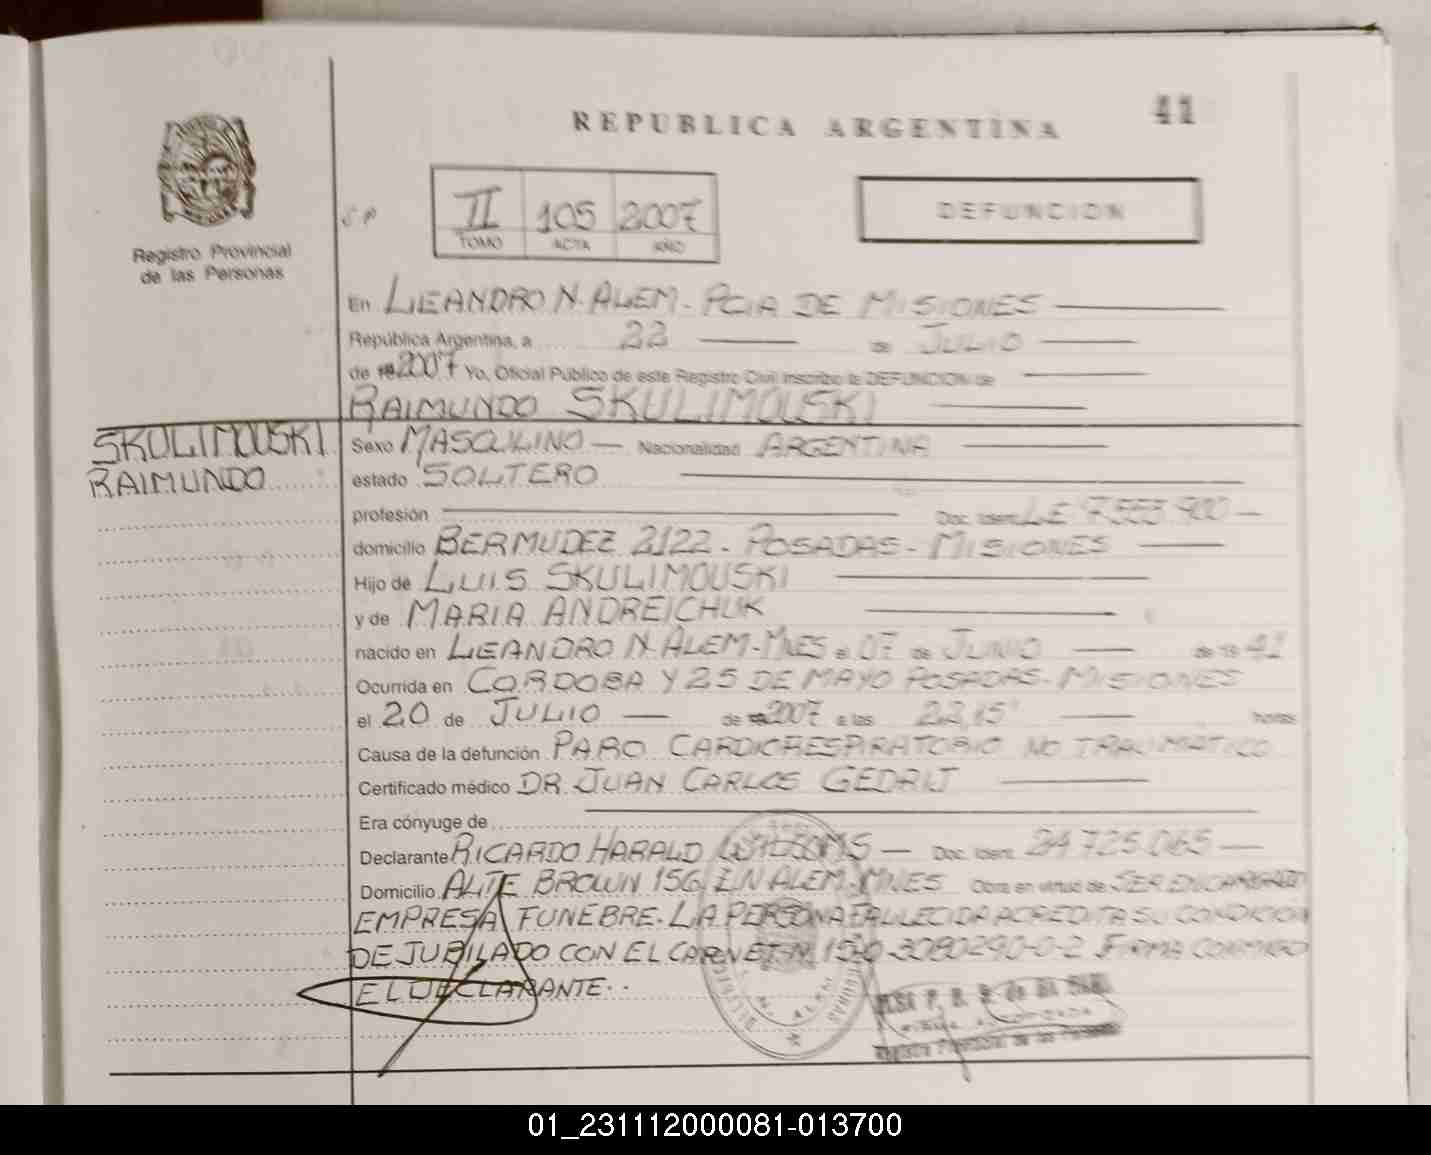 REPUBLICA ARGENTINA
41
Registro Provincial
de las Personas
II 105 2007
TOMO ACTA AÑO
DEFUNCION
En LEANDRO N. ALEM - PCIA DE MISIONES
República Argentina, a 22 de JULIO
de 2007 Yo, Oficial Público de este Registro Civil inscribo la DEFUNCION de
RAIMUNDO SKULIMOUSKI
SKULIMOUSKI
RAIMUNDO
Sexo MASCULINO Nacionalidad ARGENTINA
estado SOLTERO
profesión Doc. Ident. LE 7.553.900
domicilio BERMUDEZ 2122 - POSADAS - MISIONES
Hijo de LUIS SKULIMOUSKI
y de MARIA ANDREICHUK
nacido en LEANDRO N. ALEM - MNES el 07 de JUNIO de 19 41
Ocurrida en CORDOBA Y 25 DE MAYO POSADAS - MISIONES
el 20 de JULIO de 2007 a las 22,15 horas
Causa de la defunción PARO CARDIORESPIRATORIO NO TRAUMATICO
Certificado médico DR. JUAN CARLOS
Era cónyuge de
Declarante RICARDO HARALD Doc. Ident. 24.725.065
Domicilio ALTE BROWN 156 LN ALEM - MNES Obra en virtud de SER ENCARGADO
EMPRESA FUNEBRE. LA PERSONA FALLECIDA ACREDITA SU CONDICION
DE JUBILADO CON EL CARNET N 150-3080290-0-2 FIRMA CONMIGO
EL DECLARANTE..
Registro Provincial de las Personas
01_231112000081-013700